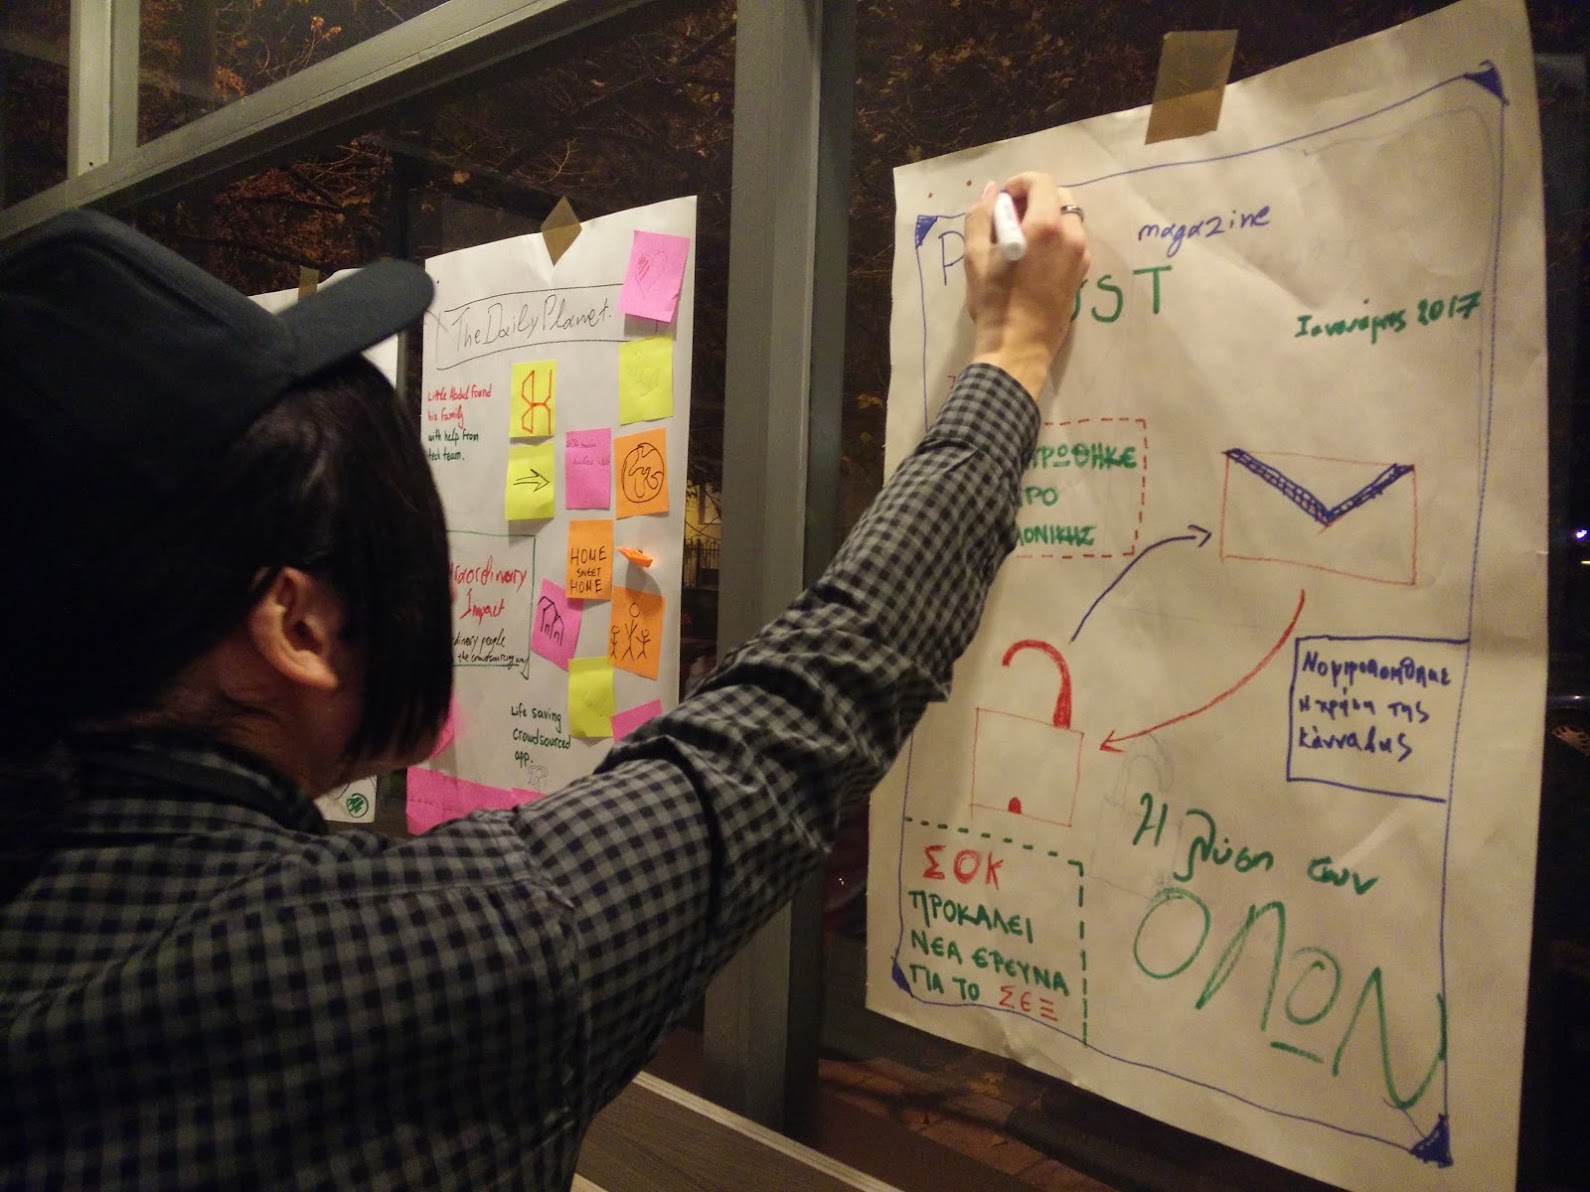 The Daily Planet.
Little Abdul found
his family
with help from
tech team.
HOME
SWEET
HOME
Impact
people
the crowdsourcing
Life saving
crowdsourced
app.
magazine
ST
Ιανουάριος 2017
ΡΩΘΗΚΕ
ΡΟ
ΟΝΙΚΗΣ
Νομιμοποιήθηκε
η χρήση της
κάνναβης
Η λύση των
ΟΛΩΝ
ΣΟΚ
ΠΡΟΚΑΛΕΙ
ΝΕΑ ΕΡΕΥΝΑ
ΓΙΑ ΤΟ ΣΕΞ